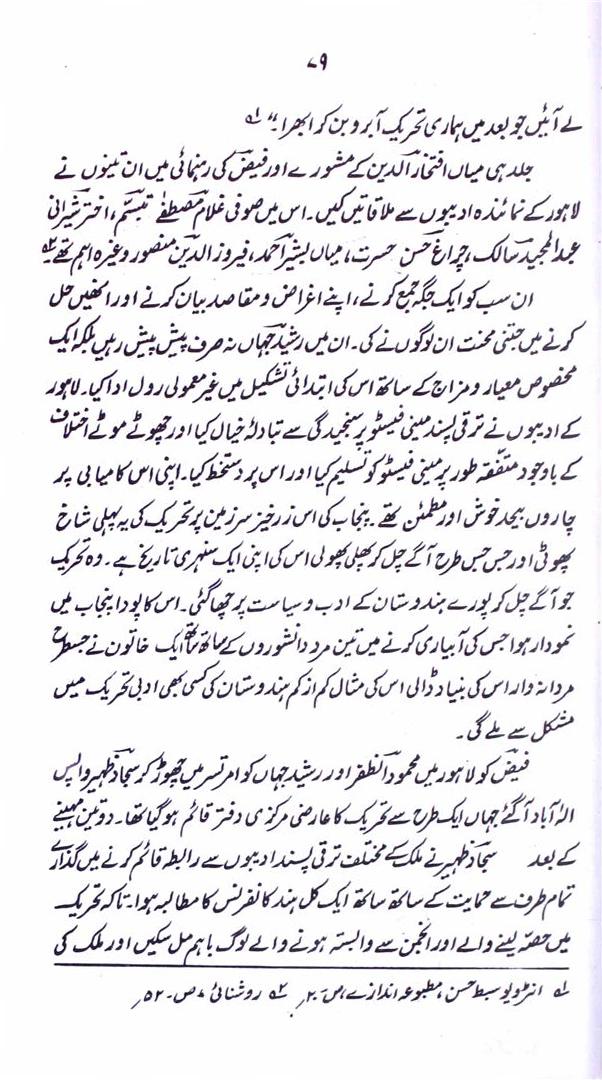 ۷۹
لے آئیں جو بعد میں ہماری تحریک آبرو بن کر ابھرا۔" ۱؎
جلد ہی میاں افتخار الدین کے مشورے اور فیض کی رہنمائی میں ان تینوں نے
لاہور کے نمائندہ ادیبوں سے ملاقاتیں کیں۔ اس میں صوفی غلام مصطفےٰ تبسّم، اختر شیرانی
عبدالمجید سالک، چراغ حسن حسرت، میاں بشیر احمد، فیروز الدین منصور وغیرہ اہم تھے ۲؎
ان سب کو ایک جگہ جمع کرنے، اپنے اغراض و مقاصد بیان کرنے اور انھیں حل
کرنے میں جتنی محنت ان لوگوں نے کی۔ ان میں رشید جہاں نہ صرف پیش پیش رہیں بلکہ ایک
مخصوص معیار و مزاج کے ساتھ اس کی ابتدائی تشکیل میں غیر معمولی رول ادا کیا۔ لاہور
کے ادیبوں نے ترقی پسند مینی فیسٹو پر سنجیدگی سے تبادلۂ خیال کیا اور چھوٹے موٹے اختلاف
کے باوجود متفقہ طور پر مینی فیسٹو کو تسلیم کیا اور اس پر دستخط کیا۔ اپنی اس کامیابی پر
چاروں بیحد خوش اور مطمئن تھے۔ پنجاب کی اس زرخیز سرزمین پر تحریک کی یہ پہلی شاخ
پھوٹی اور جس جس طرح آگے چل کر پھلی پھولی اس کی اپنی ایک سنہری تاریخ ہے۔ وہ تحریک
جو آگے چل کر پورے ہندوستان کے ادب و سیاست پر چھا گئی۔ اس کا پودا پنجاب میں
نمودار ہوا جس کی آبیاری کرنے میں تین مرد دانشوروں کے ساتھ ساتھ ایک خاتون نے جسطرح
مردانہ وار اس کی بنیاد ڈالی اس کی مثال کم از کم ہندوستان کی کسی بھی ادبی تحریک میں
مشکل سے ملے گی۔
فیض کو لاہور میں محمود الظفر اور رشید جہاں کو امرتسر میں چھوڑ کر سجاد ظہیر واپس
الہ آباد آگئے جہاں ایک طرح سے تحریک کا عارضی مرکزی دفتر قائم ہوگیا تھا۔ دو تین مہینے
کے بعد سجاد ظہیر نے ملک کے مختلف ترقی پسند ادیبوں سے رابطہ قائم کرنے میں گذارے
تمام طرف سے حمایت کے ساتھ ساتھ ایک کل ہند کانفرنس کا مطالبہ ہوا۔ تاکہ تحریک
میں حصّہ لینے والے اور انجمن سے وابستہ ہونے والے لوگ باہم مل سکیں اور ملک کی
۱؎ انٹرویو سبط حسن، مطبوعہ اندازے، ص۔ ۲۰، ۲؎ روشنائی، ص۔ ۵۲،